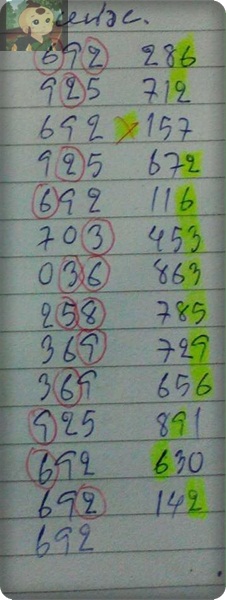 692 286
925 712
692 x 157
925 672
692 116
703 453
036 863
258 785
369 729
369 656
925 891
692 630
692 142
692